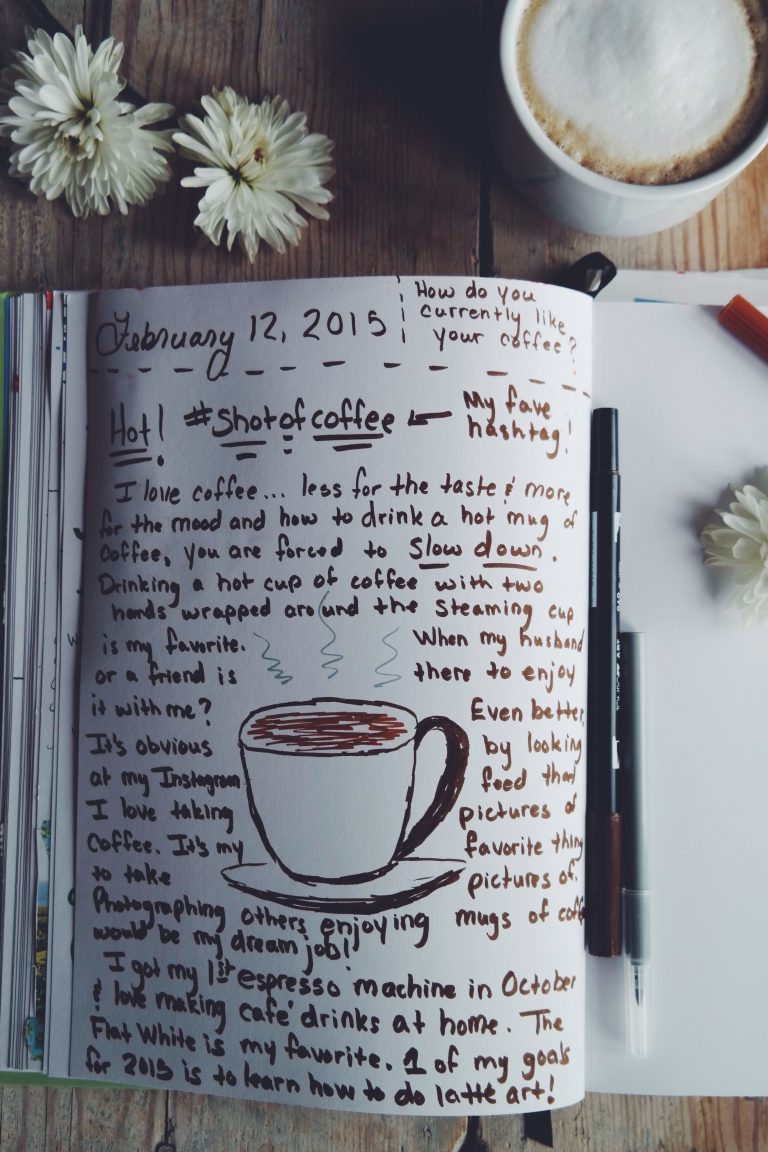 February 12, 2015
How do you
currently like
your coffee?
Hot! #Shotofcoffee ← My fave
hashtag!
I love coffee... less for the taste & more
for the mood and how to drink a hot mug of
coffee, you are forced to slow down.
Drinking a hot cup of coffee with two
hands wrapped around the steaming cup
is my favorite. When my husband
or a friend is there to enjoy
it with me? Even better.
It's obvious by looking
at my Instagram feed that
I love taking pictures of
coffee. It's my favorite thing
to take pictures of.
Photographing others enjoying mugs of coff
would be my dream job!
I got my 1st espresso machine in October
& love making café drinks at home. The
Flat White is my favorite. 1 of my goals
for 2015 is to learn how to do latté art!